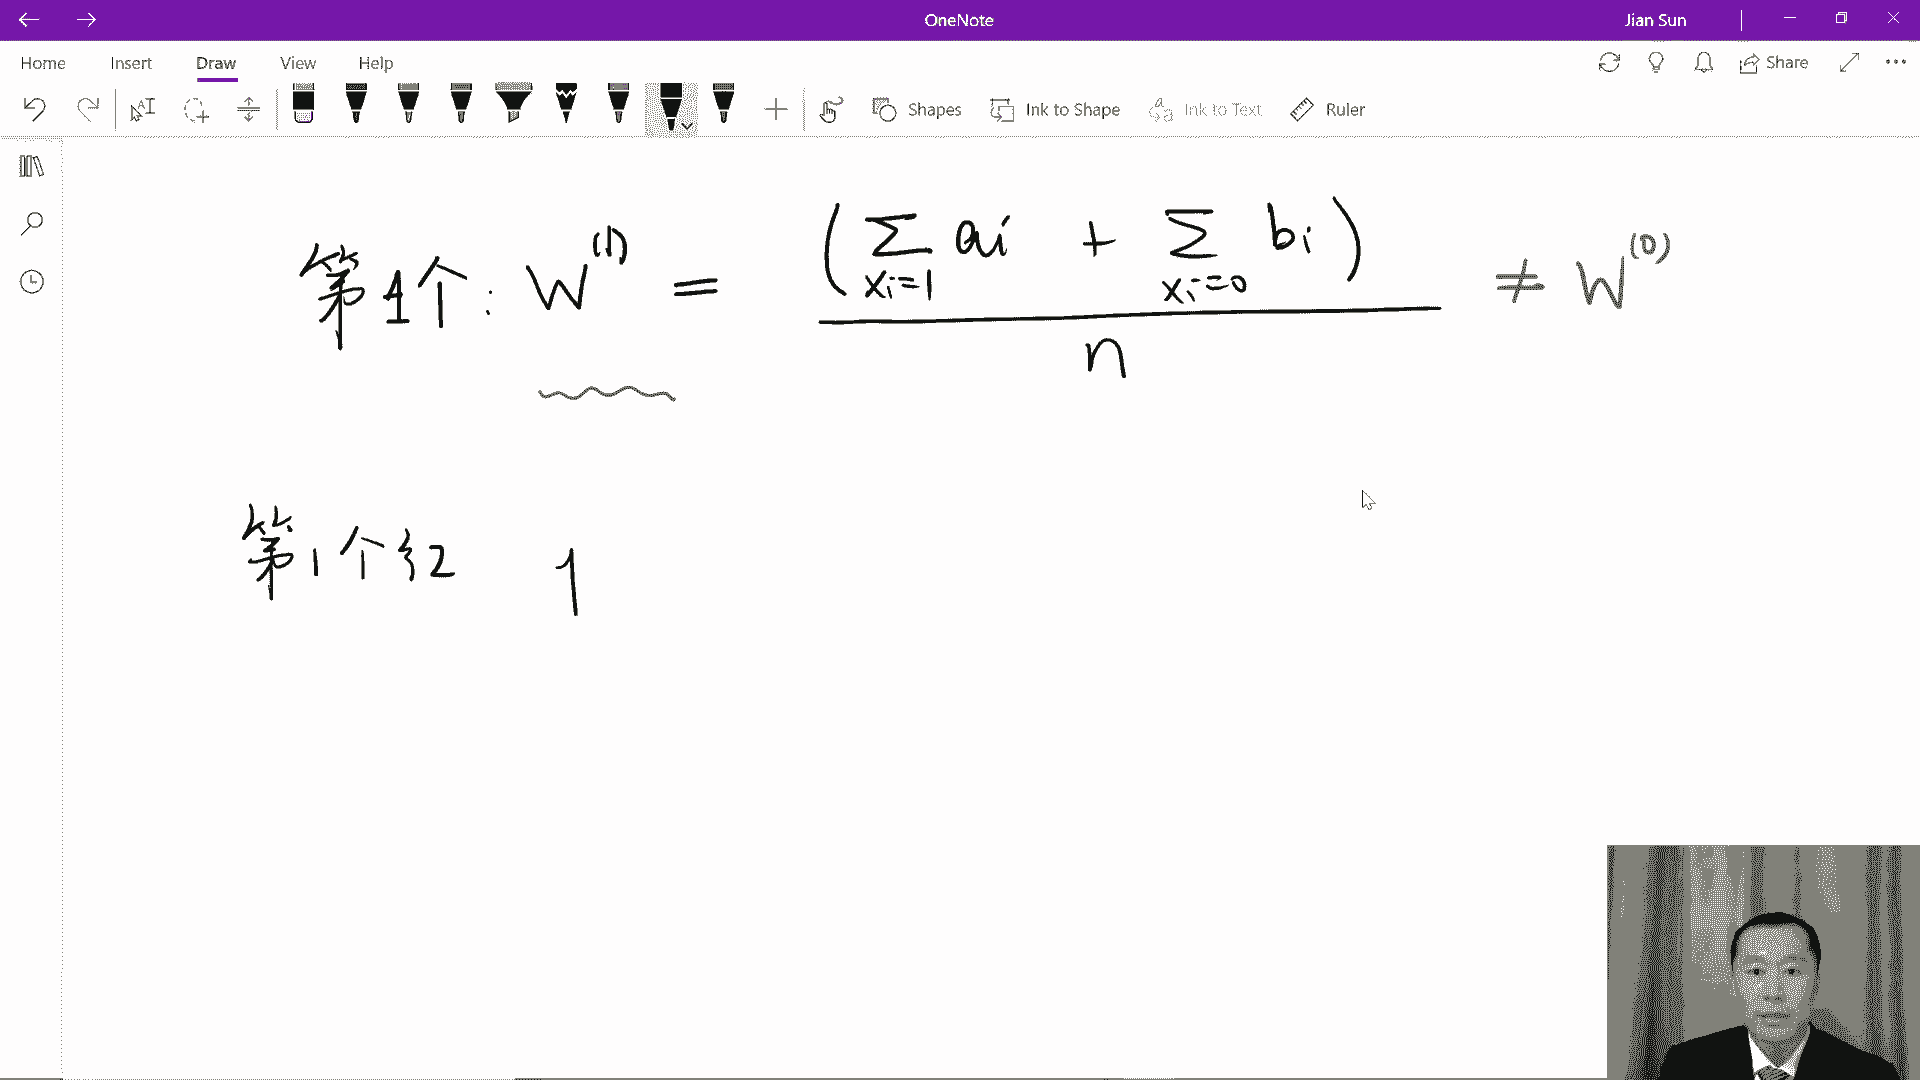 OneNote
Jian Sun
Home Insert Draw View Help Share
Shapes Ink to Shape Ink to Text Ruler
第1个: W^(1) = (∑_{xi=1} ai + ∑_{xi=0} bi) / n ≠ W^(0)
第1个红